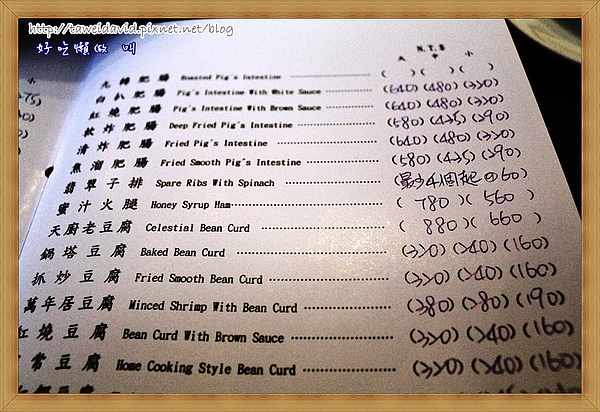 http://taweidavid.pixnet.net/blog
好吃懶做 唎
N.T.$
大 中 小
九轉肥腸 Roasted Pig's Intestine ( ) ( ) ( )
白扒肥腸 Pig's Intestine With White Sauce (640) (480) (320)
紅燒肥腸 Pig's Intestine With Brown Sauce (640) (480) (320)
軟炸肥腸 Deep Fried Pig's Intestine (580) (435) (290)
清炸肥腸 Fried Pig's Intestine (640) (480) (320)
焦溜肥腸 Fried Smooth Pig's Intestine (580) (435) (290)
翡翠子排 Spare Ribs With Spinach (最少4個起 @60)
蜜汁火腿 Honey Syrup Ham ( 780 ) ( 560 )
天廚老豆腐 Celestial Bean Curd ( 880 ) ( 660 )
鍋塔豆腐 Baked Bean Curd (320) (240) (160)
抓炒豆腐 Fried Smooth Bean Curd (320) (240) (160)
萬年居豆腐 Minced Shrimp With Bean Curd (380) (280) (190)
紅燒豆腐 Bean Curd With Brown Sauce (320) (240) (160)
常豆腐 Home Cooking Style Bean Curd (320) (240) (160)